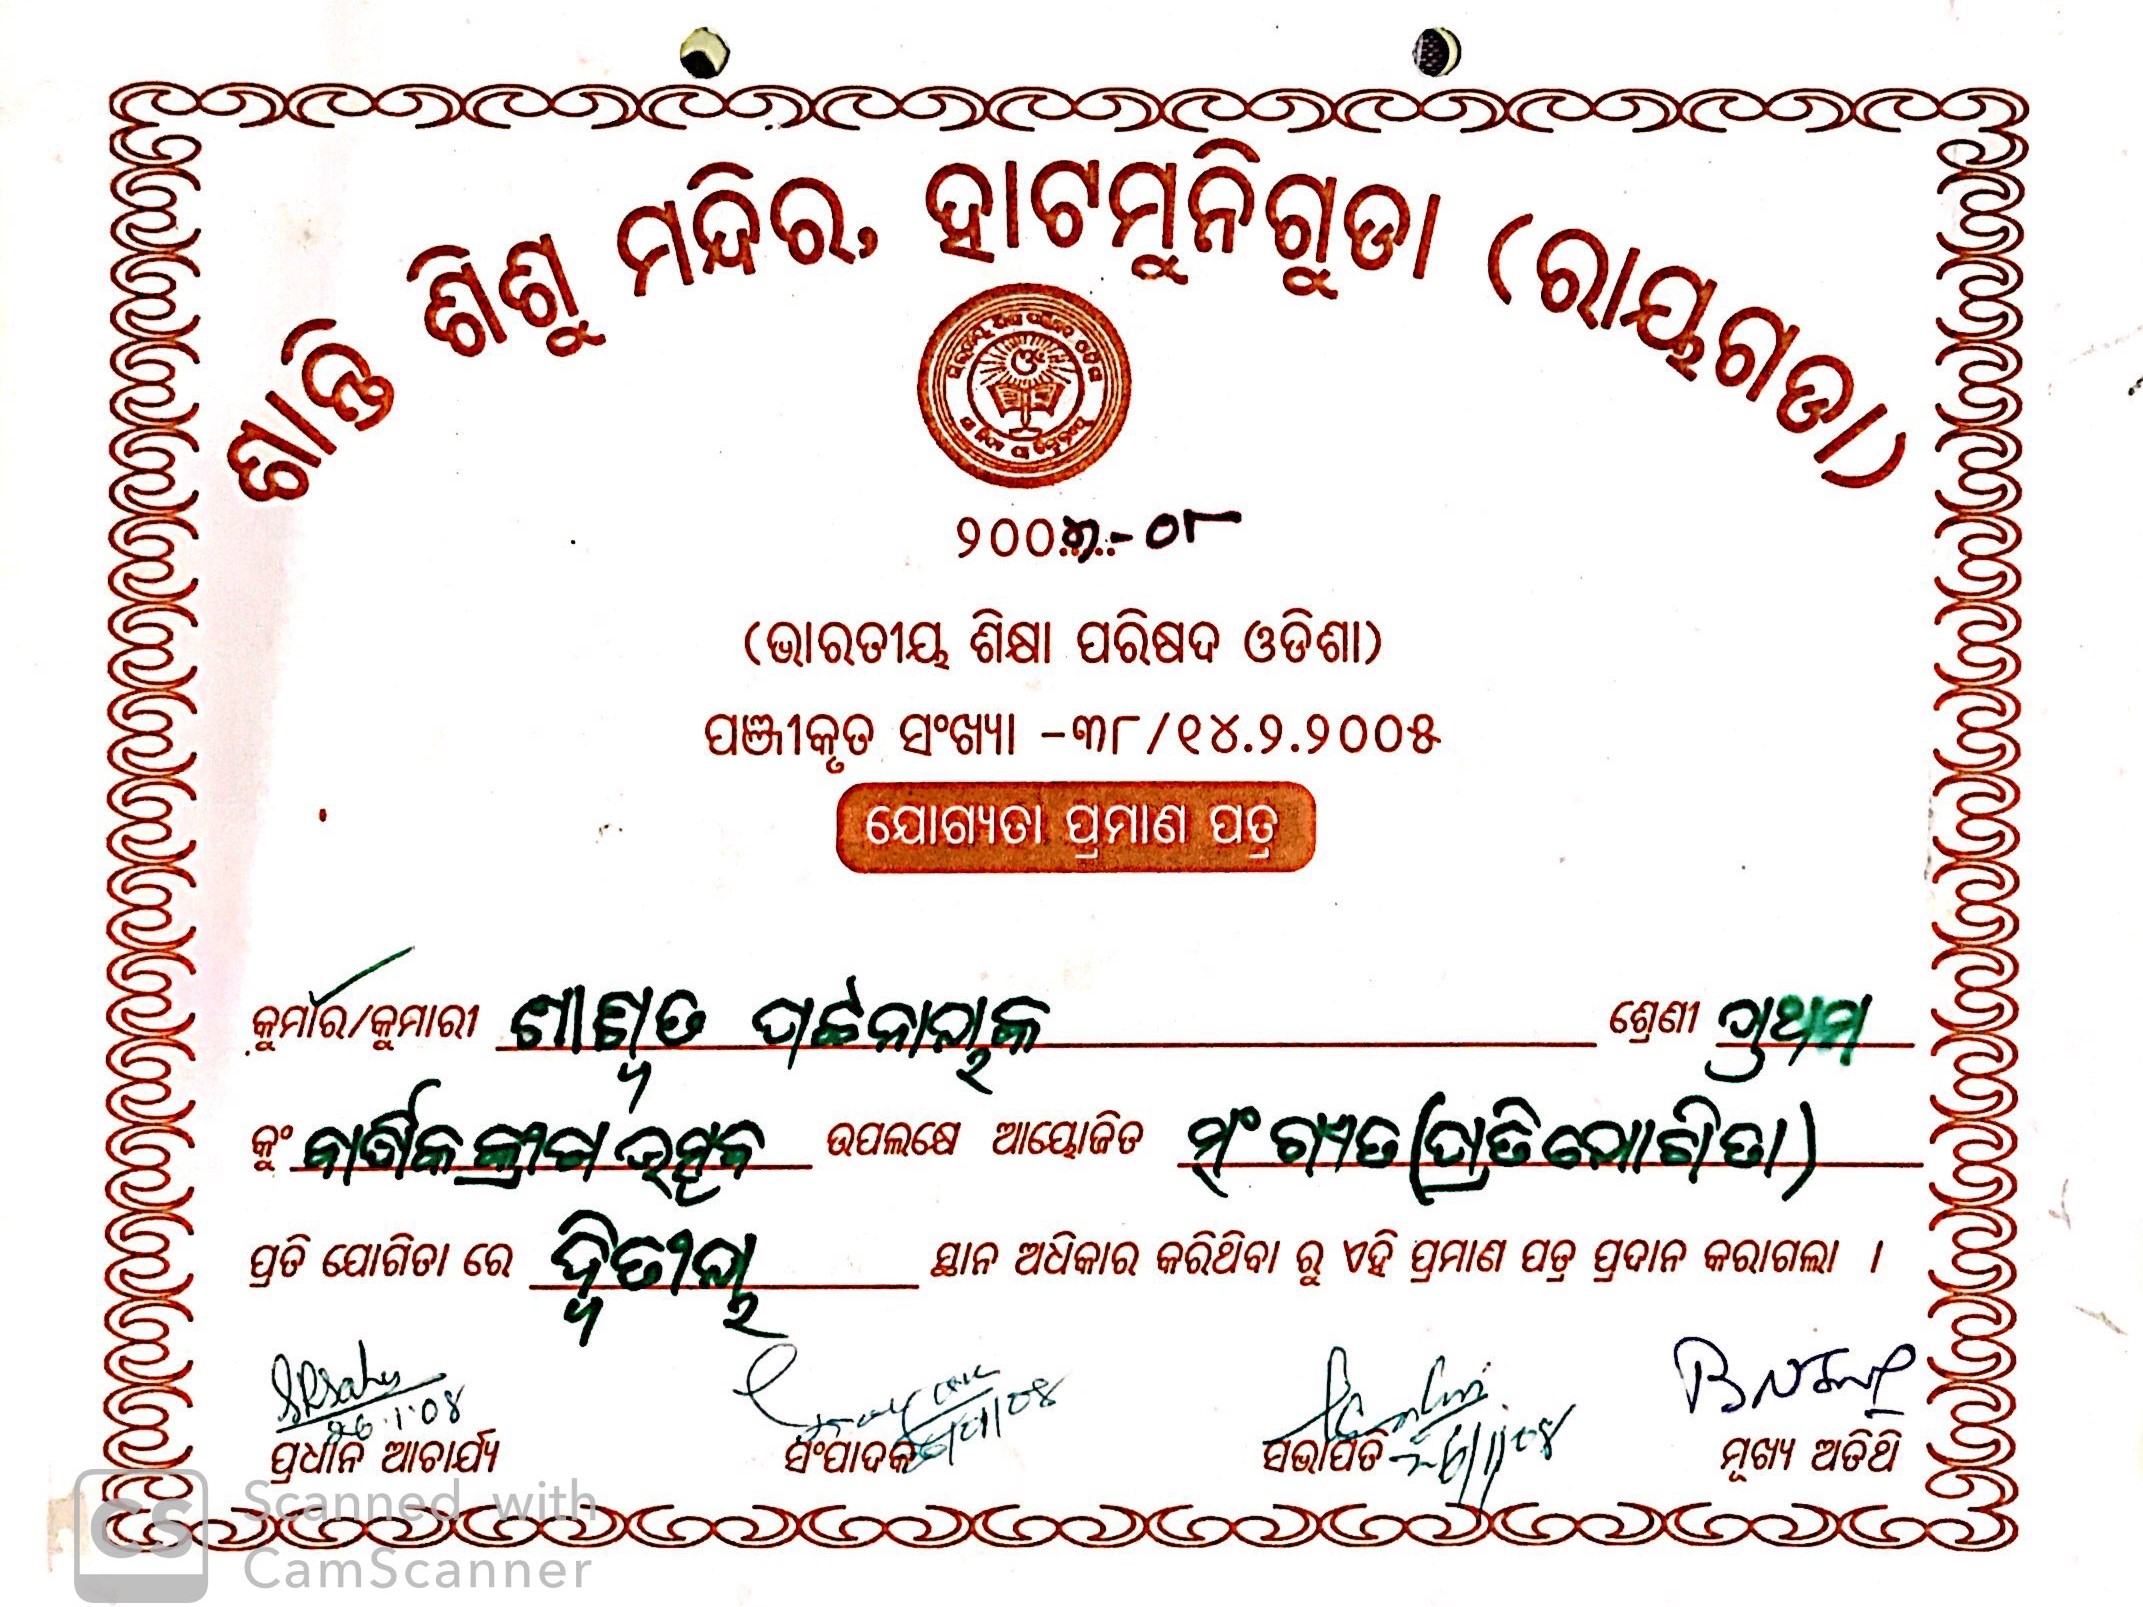 ଶାନ୍ତି ଶିଶୁ ମନ୍ଦିର, ହାଟମୁନିଗୁଡା (ରାୟଗଡା)
୨୦୦୭-୦୮
(ଭାରତୀୟ ଶିକ୍ଷା ପରିଷଦ ଓଡିଶା)
ପଞ୍ଜୀକୃତ ସଂଖ୍ୟା -୩୮/୧୪.୨.୨୦୦୫
ଯୋଗ୍ୟତା ପ୍ରମାଣ ପତ୍ର
କୁମାର/କୁମାରୀ ଶାଶ୍ୱତ ପଟ୍ଟନାୟକ ଶ୍ରେଣୀ ପ୍ରଥମ
କୁଂ ବାର୍ଷିକ କ୍ରୀଡା ଉତ୍ସବ ଉପଲକ୍ଷେ ଆୟୋଜିତ ସଂଗୀତ (ପ୍ରତିଯୋଗିତା)
ପ୍ରତି ଯୋଗିତା ରେ ଦ୍ୱିତୀୟ ସ୍ଥାନ ଅଧିକାର କରିଥିବା ରୁ ଏହି ପ୍ରମାଣ ପତ୍ର ପ୍ରଦାନ କରାଗଲା ।
SRSahu
26.1.08
ପ୍ରଧାନ ଆଚାର୍ଯ୍ୟ ସଂପାଦକ ସଭାପତି 26/1/08 ମୂଖ୍ୟ ଅତିଥି
CS Scanned with
CamScanner